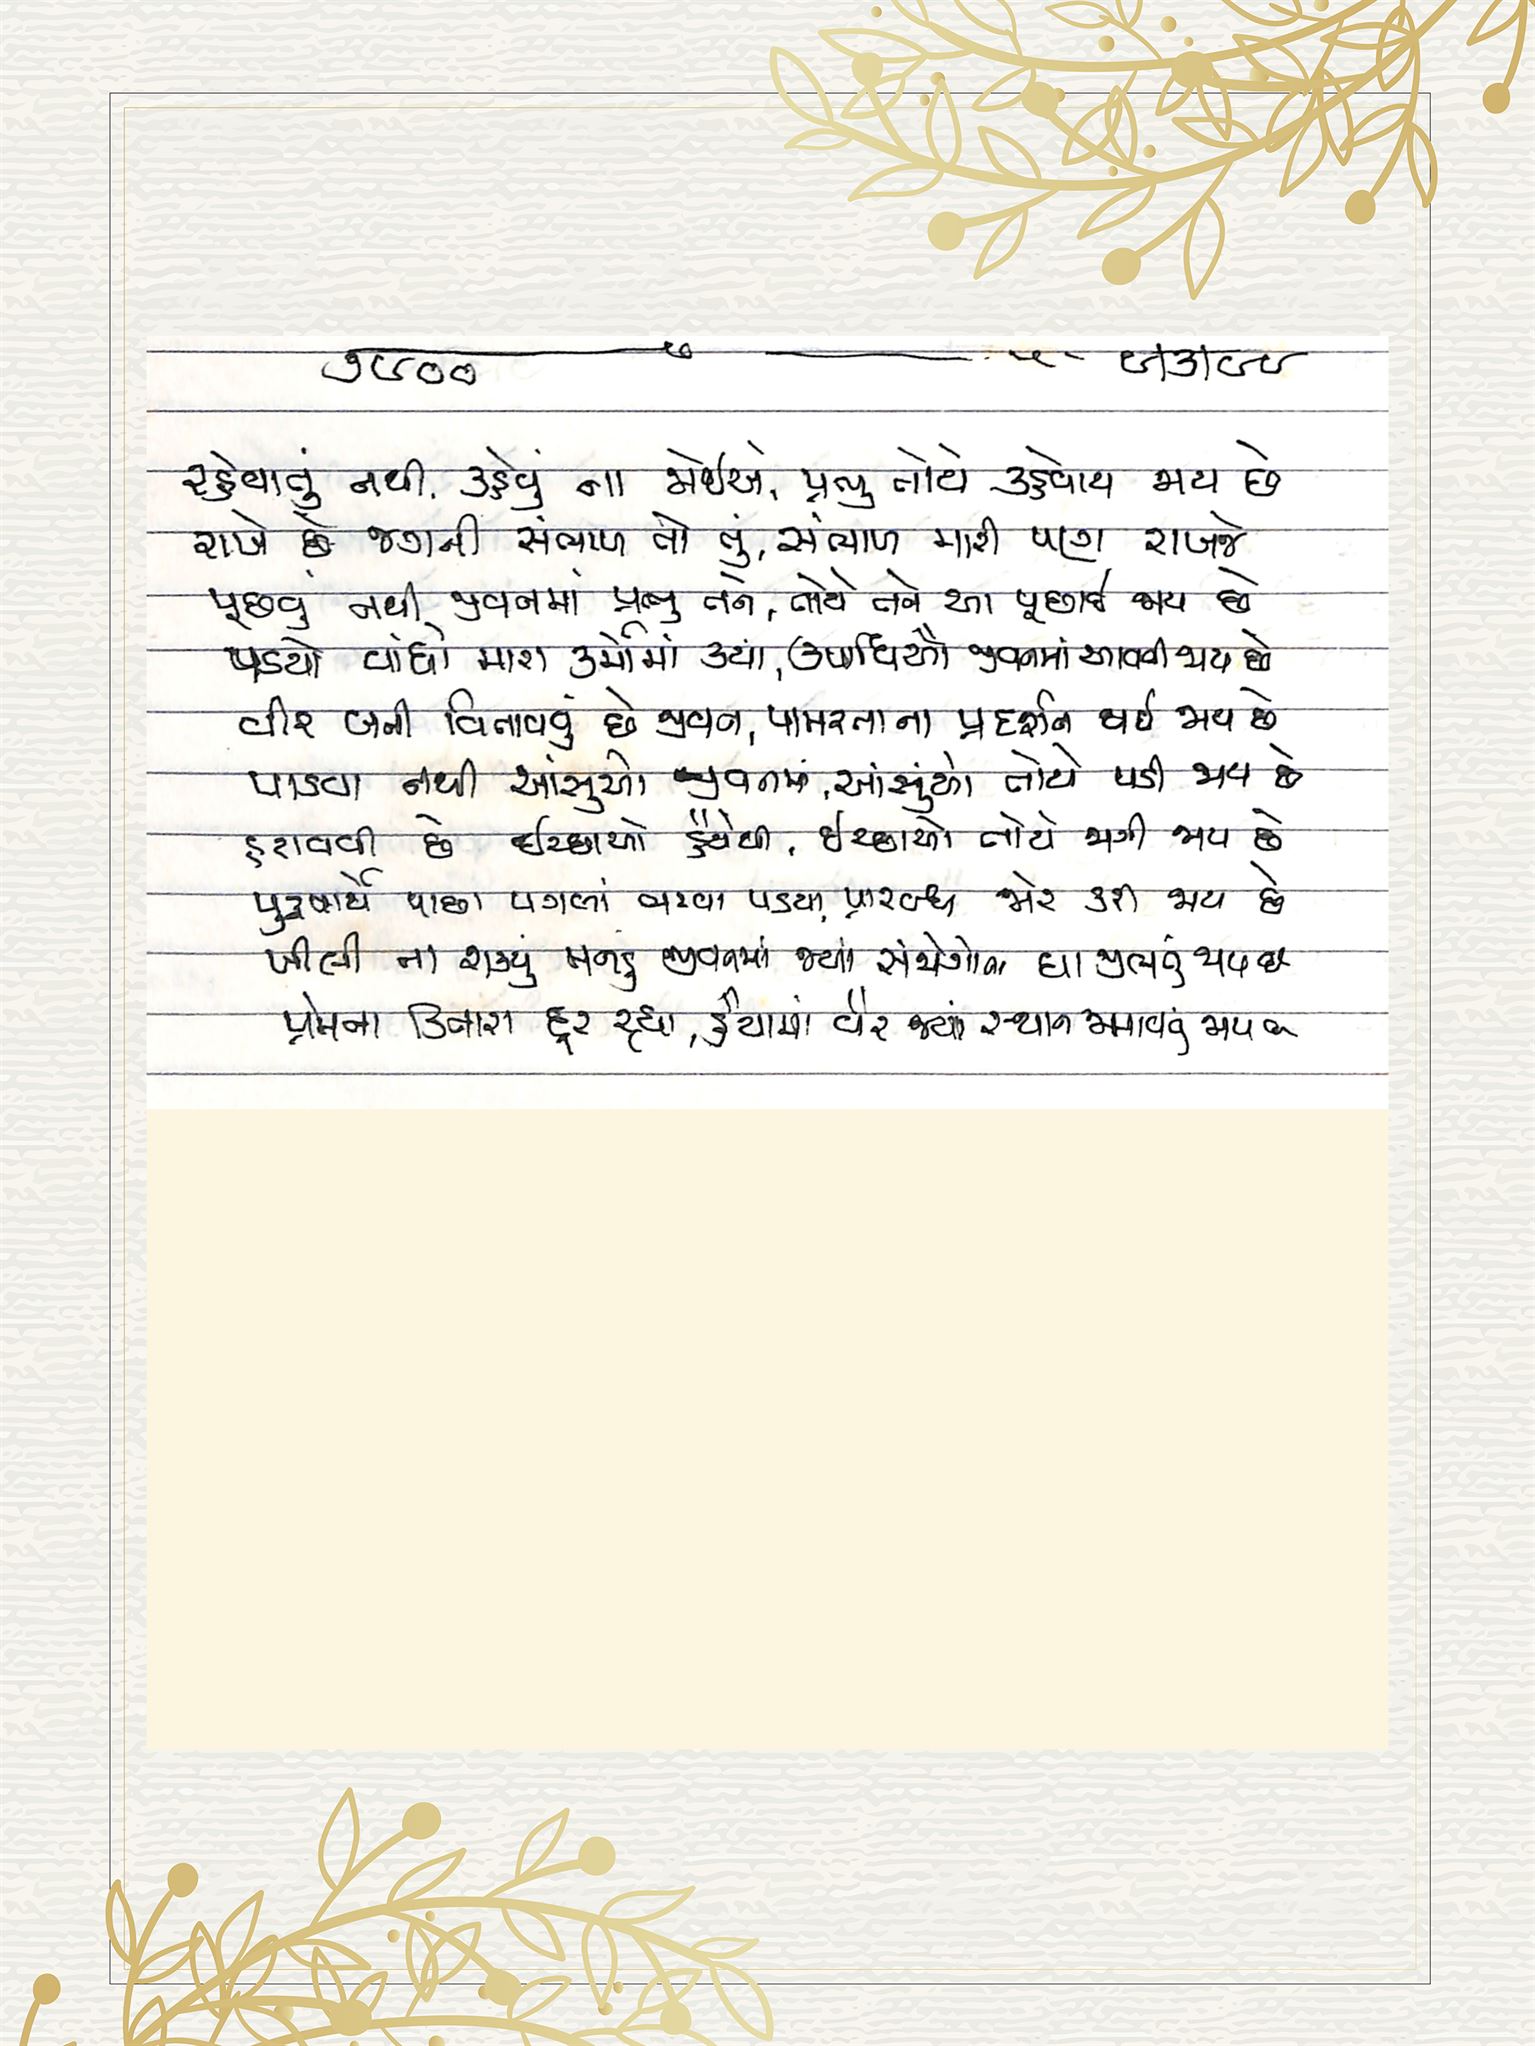 ૭૯૦૦
રહેવાતું નથી, કહેવું ના જોઈએ, પ્રભુ તોયે કહેવાય જાય છે
રાખે છે જગની સંભાળ તો તું, સંભાળ મારી પણ રાખજે
પૂછવું નથી જીવનમાં પ્રભુ તને, તોયે તને આ પૂછાઈ જાય છે
પડયો વાંધો મારા કર્મોમાં ક્યાં, ઉપાધિઓ જીવનમાં આવતી જાય છે
વીર બની વિતાવવું છે જીવન, પામરતાના પ્રદર્શન થઈ જાય છે
પાડવા નથી આંસુઓ જીવનમાં, આંસુંઓ તોયે પડી જાય છે
હરાવવી છે ઈચ્છાઓ હૈયેથી, ઈચ્છાઓ તોયે જાગી જાય છે
પુરુષાર્થે પાછા પગલાં ભરવા પડયા, પ્રારબ્ધ જોર કરી જાય છે
ખીલી ના શક્યું મનડુ જીવનમાં જ્યાં સંજોગોના ઘા જીલતું જાય છે
પ્રેમના કિનારા દૂર રહ્યા, હૈયામાં વૈર જ્યાં સ્થાન જમાવતું જાય છે